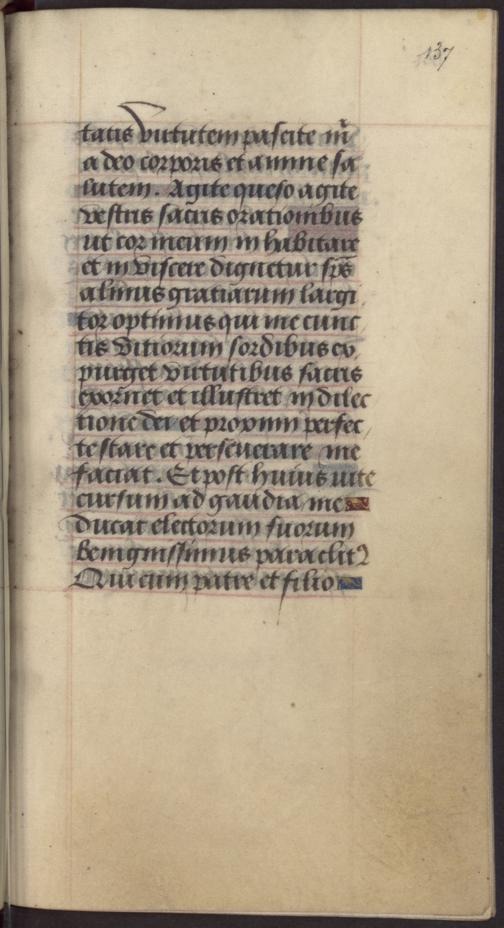 137
tatis virtutem poscite m̃
a deo corporis et anime sa
lutem. Agite queso agite
vestris sacris orationibus
ut cor meum inhabitare
et in viscere dignetur sp̃s
almus gratiarum largi
tor optimus qui me cunc
tis vitiorum sordibus ex
purget virtutibus sacris
exornet et illustret in dilec
tione dei et proximi perfec
te stare et perseverare me
faciat. Et post huius vite
cursum ad gaudia me
ducat electorum suorum
benignissimus paraclit9
Qui cum patre et filio